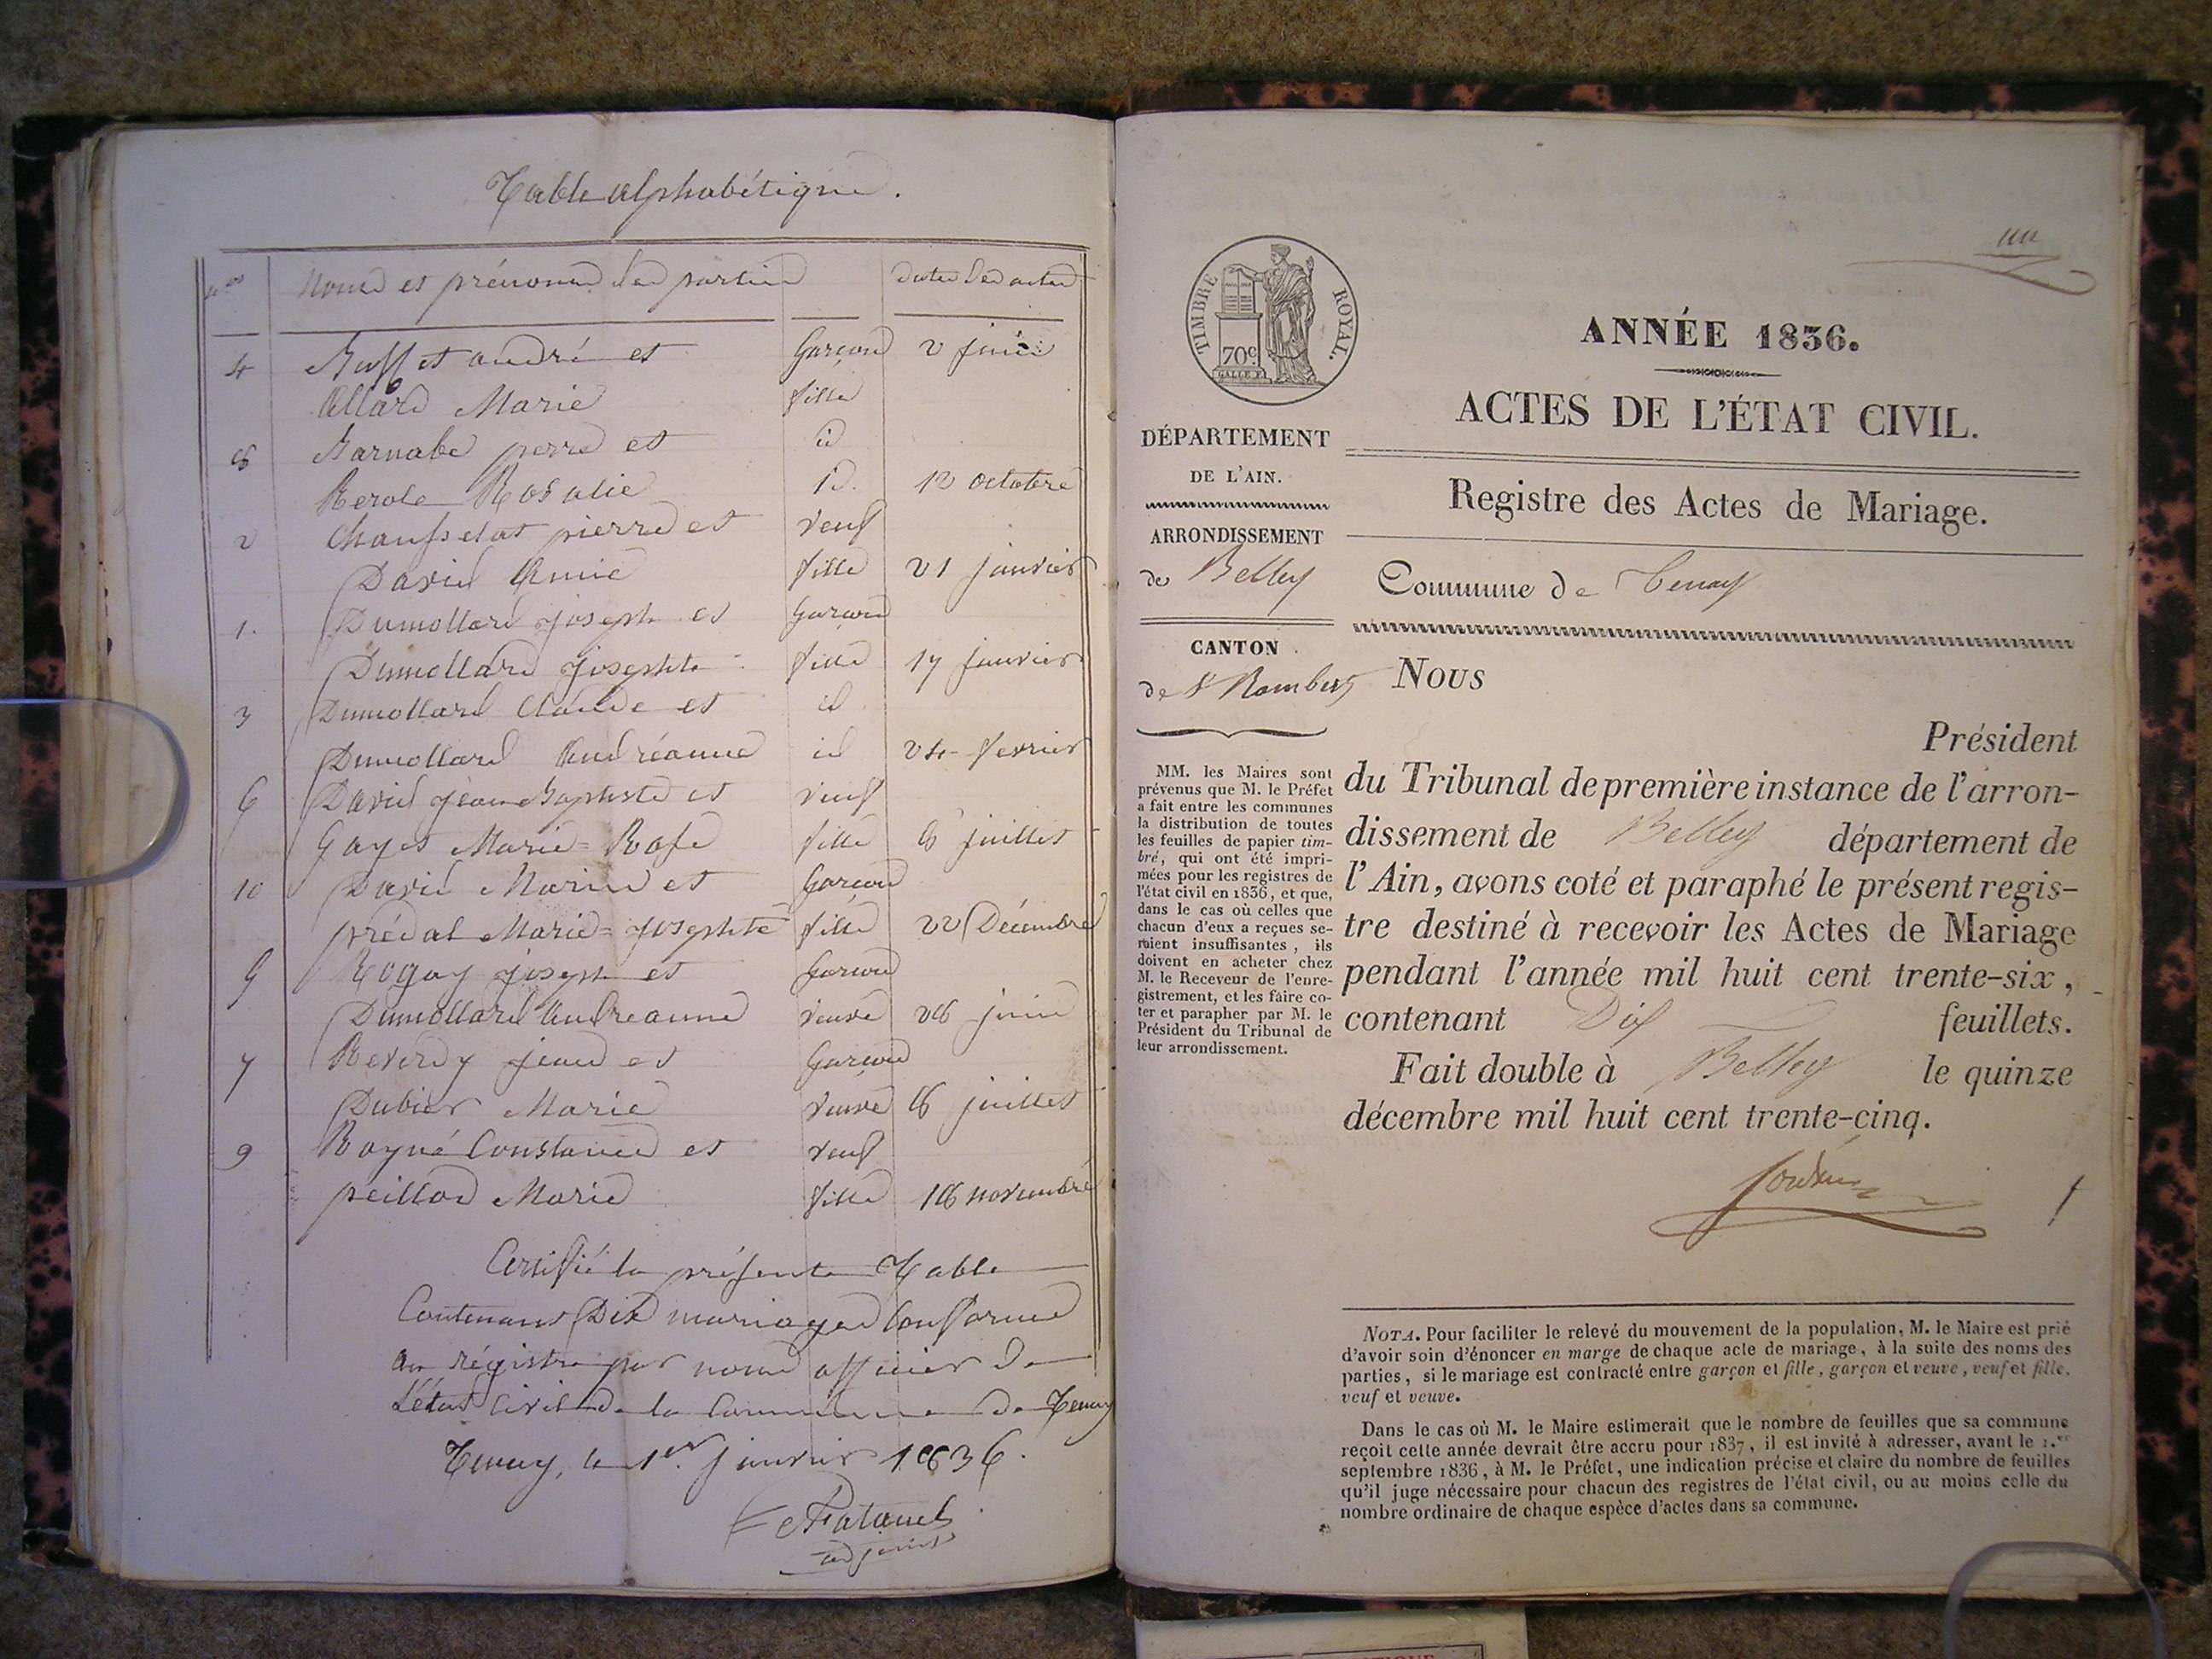 Table alphabétique.
Nos Noms et prénoms des parties dates des actes
4 Buffet andré et Garçon 2 juin
Allard Marie fille
8 Barnabe pierre et id
Rosalie id. 12 octobre
2 pierre et veuf
David fille 21 janvier
1. Dumollard joseph et Garçon
Dumollard josephte fille 17 janvier
3 Dumollard Claude et id
Dumollard Andréanne id 24 fevrier
6 David jean Baptiste et veuf
Gayet Marie=Rose fille 8 juillet
10 David Marin et Garçon
prédal Marie=josephte fille 22 Décembre
5 Rogay joseph et Garçon
Dumollard Andreanne veuve 28 juin
7 Reverdy jean et Garçon
Dubier Marie veuve 8 juillet
9 Constance et veuf
peillod Marie fille 18 novembre
Certifié la présente Table
Contenant Dix mariages Conforme
au régistre par nous officier de
L'état Civil de la Commune de Tenay
Tenay, le 1er. janvier 1836.
adjoint
un
TIMBRE ROYAL.
70c.
GALLE F.
ANNÉE 1836.
ACTES DE L'ÉTAT CIVIL.
Registre des Actes de Mariage.
DÉPARTEMENT
DE L'AIN.
ARRONDISSEMENT
de Belley
CANTON
de St Rambert
MM. les Maires sont
prévenus que M. le Préfet
a fait entre les communes
la distribution de toutes
les feuilles de papier tim-
bré, qui ont été impri-
mées pour les registres de
l'état civil en 1836, et que,
dans le cas où celles que
chacun d'eux a reçues se-
raient insuffisantes, ils
doivent en acheter chez
M. le Receveur de l'enre-
gistrement, et les faire co-
ter et parapher par M. le
Président du Tribunal de
leur arrondissement.
Commune de Tenay
Nous
Président
du Tribunal de première instance de l'arron-
dissement de Belley département de
l'Ain, avons coté et paraphé le présent regis-
tre destiné à recevoir les Actes de Mariage
pendant l'année mil huit cent trente-six,
contenant Dix feuillets.
Fait double à Belley le quinze
décembre mil huit cent trente-cinq.
NOTA. Pour faciliter le relevé du mouvement de la population, M. le Maire est prié
d'avoir soin d'énoncer en marge de chaque acte de mariage, à la suite des noms des
parties, si le mariage est contracté entre garçon et fille, garçon et veuve, veuf et fille,
veuf et veuve.
Dans le cas où M. le Maire estimerait que le nombre de feuilles que sa commune
reçoit cette année devrait être accru pour 1837, il est invité à adresser, avant le 1.er
septembre 1836, à M. le Préfet, une indication précise et claire du nombre de feuilles
qu'il juge nécessaire pour chacun des registres de l'état civil, ou au moins celle du
nombre ordinaire de chaque espèce d'actes dans sa commune.